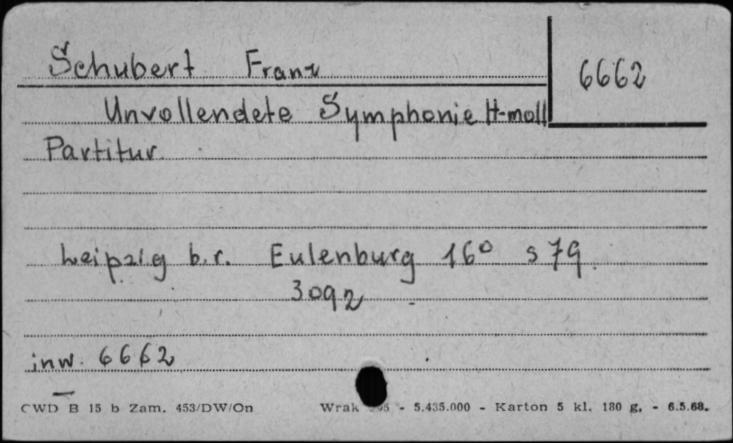 Schubert Franz
6662
Unvollendete Symphonie H-moll
Partitur.
Leipzig b.r. Eulenburg 16° s 79.
3092
inw. 6662
CWD B 15 b Zam. 453/DW/On Wrak - 5.435.000 - Karton 5 kl. 180 g. - 6.5.68.